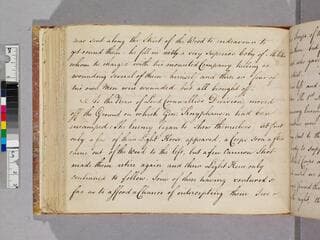 was sent along the Skirt of the Wood to endeavour to
get round them he fell in with a very Superior Body of
whom he charged with his mounted Company killing or
wounding several of them himself and three or four of
his own Men were wounded but all brought off.
As the Rear of Lord Cornwallis's Division moved
off the Ground on which Gen. Knyphausen had been
encamped the Enemy began to shew themselves. At first
only a few of their Light Horse appeared a Corps soon after
came out of the Wood to the left, but a few Cannon Shot
made them retire again and their Light Horse only
continued to follow. Some of these having ventured so
far as to afford a Chance of intercepting them